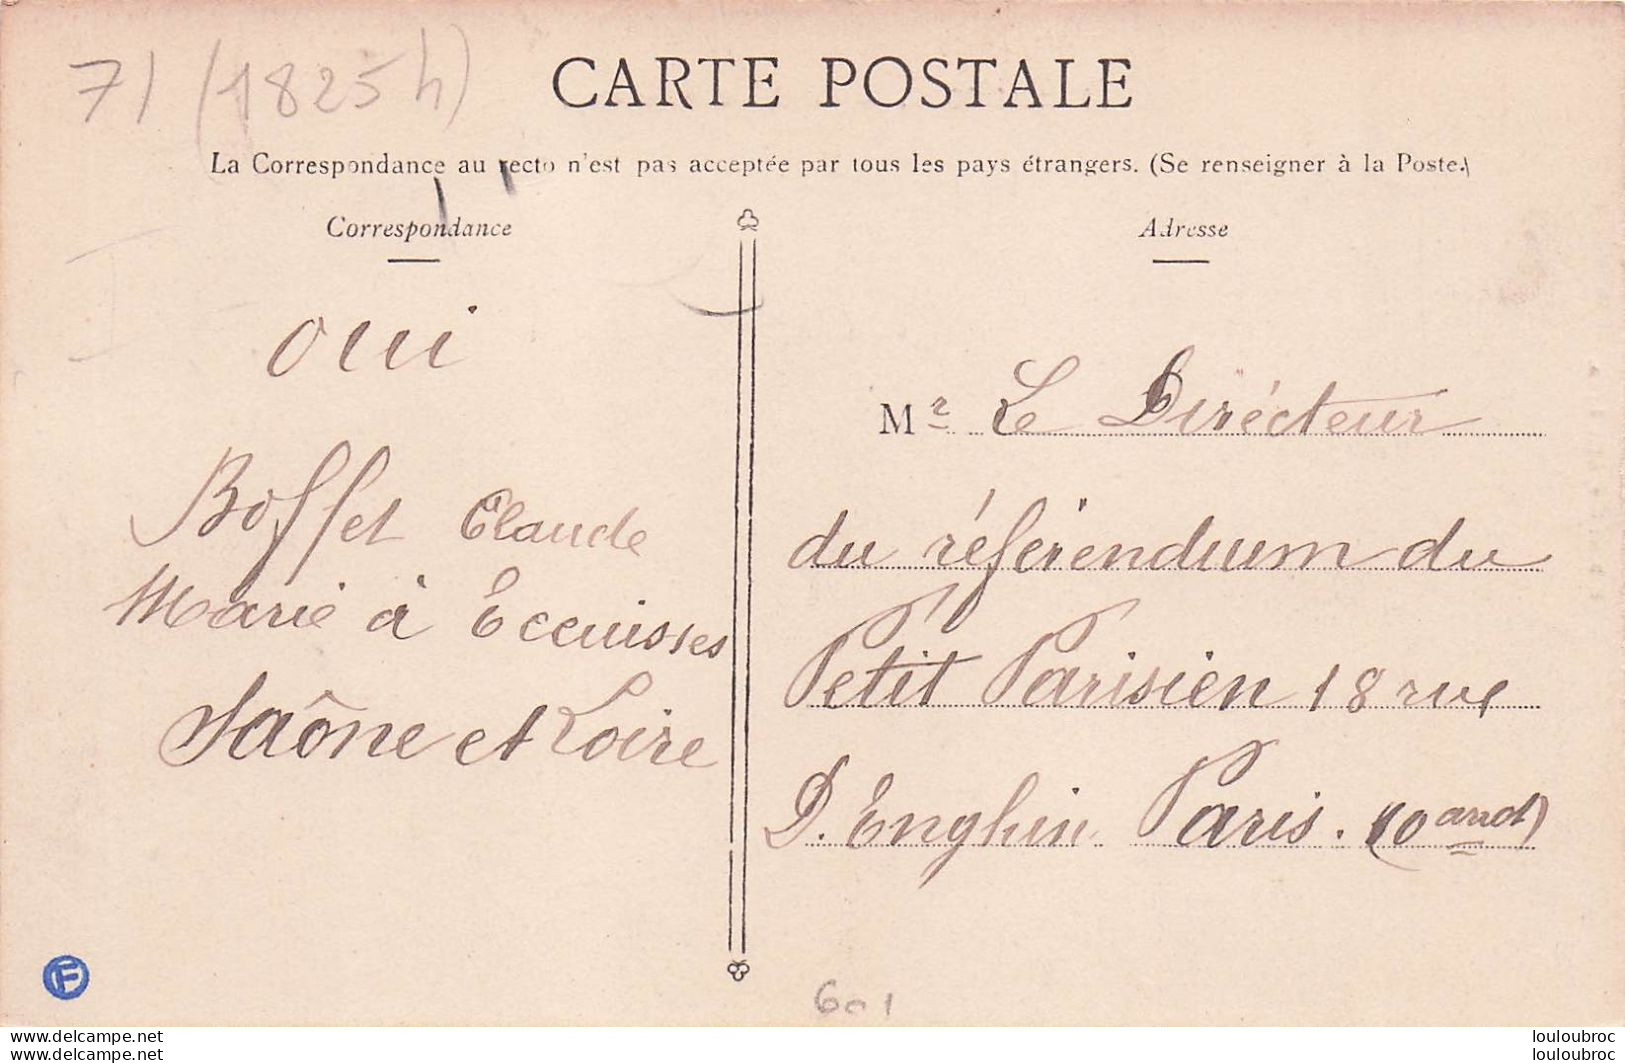 71 (1825h)
CARTE POSTALE
La Correspondance au recto n'est pas acceptée par tous les pays étrangers. (Se renseigner à la Poste.)
Correspondance
oui
Boffet Claude
Marie à Eccuisses
Saône et Loire
Adresse
Mr Le Dirécteur
du référendum du
Petit Parisien 18 rue
D. Enghin Paris. (10 arrd)
F
601
www.delcampe.net
www.delcampe.net
louloubroc
louloubroc